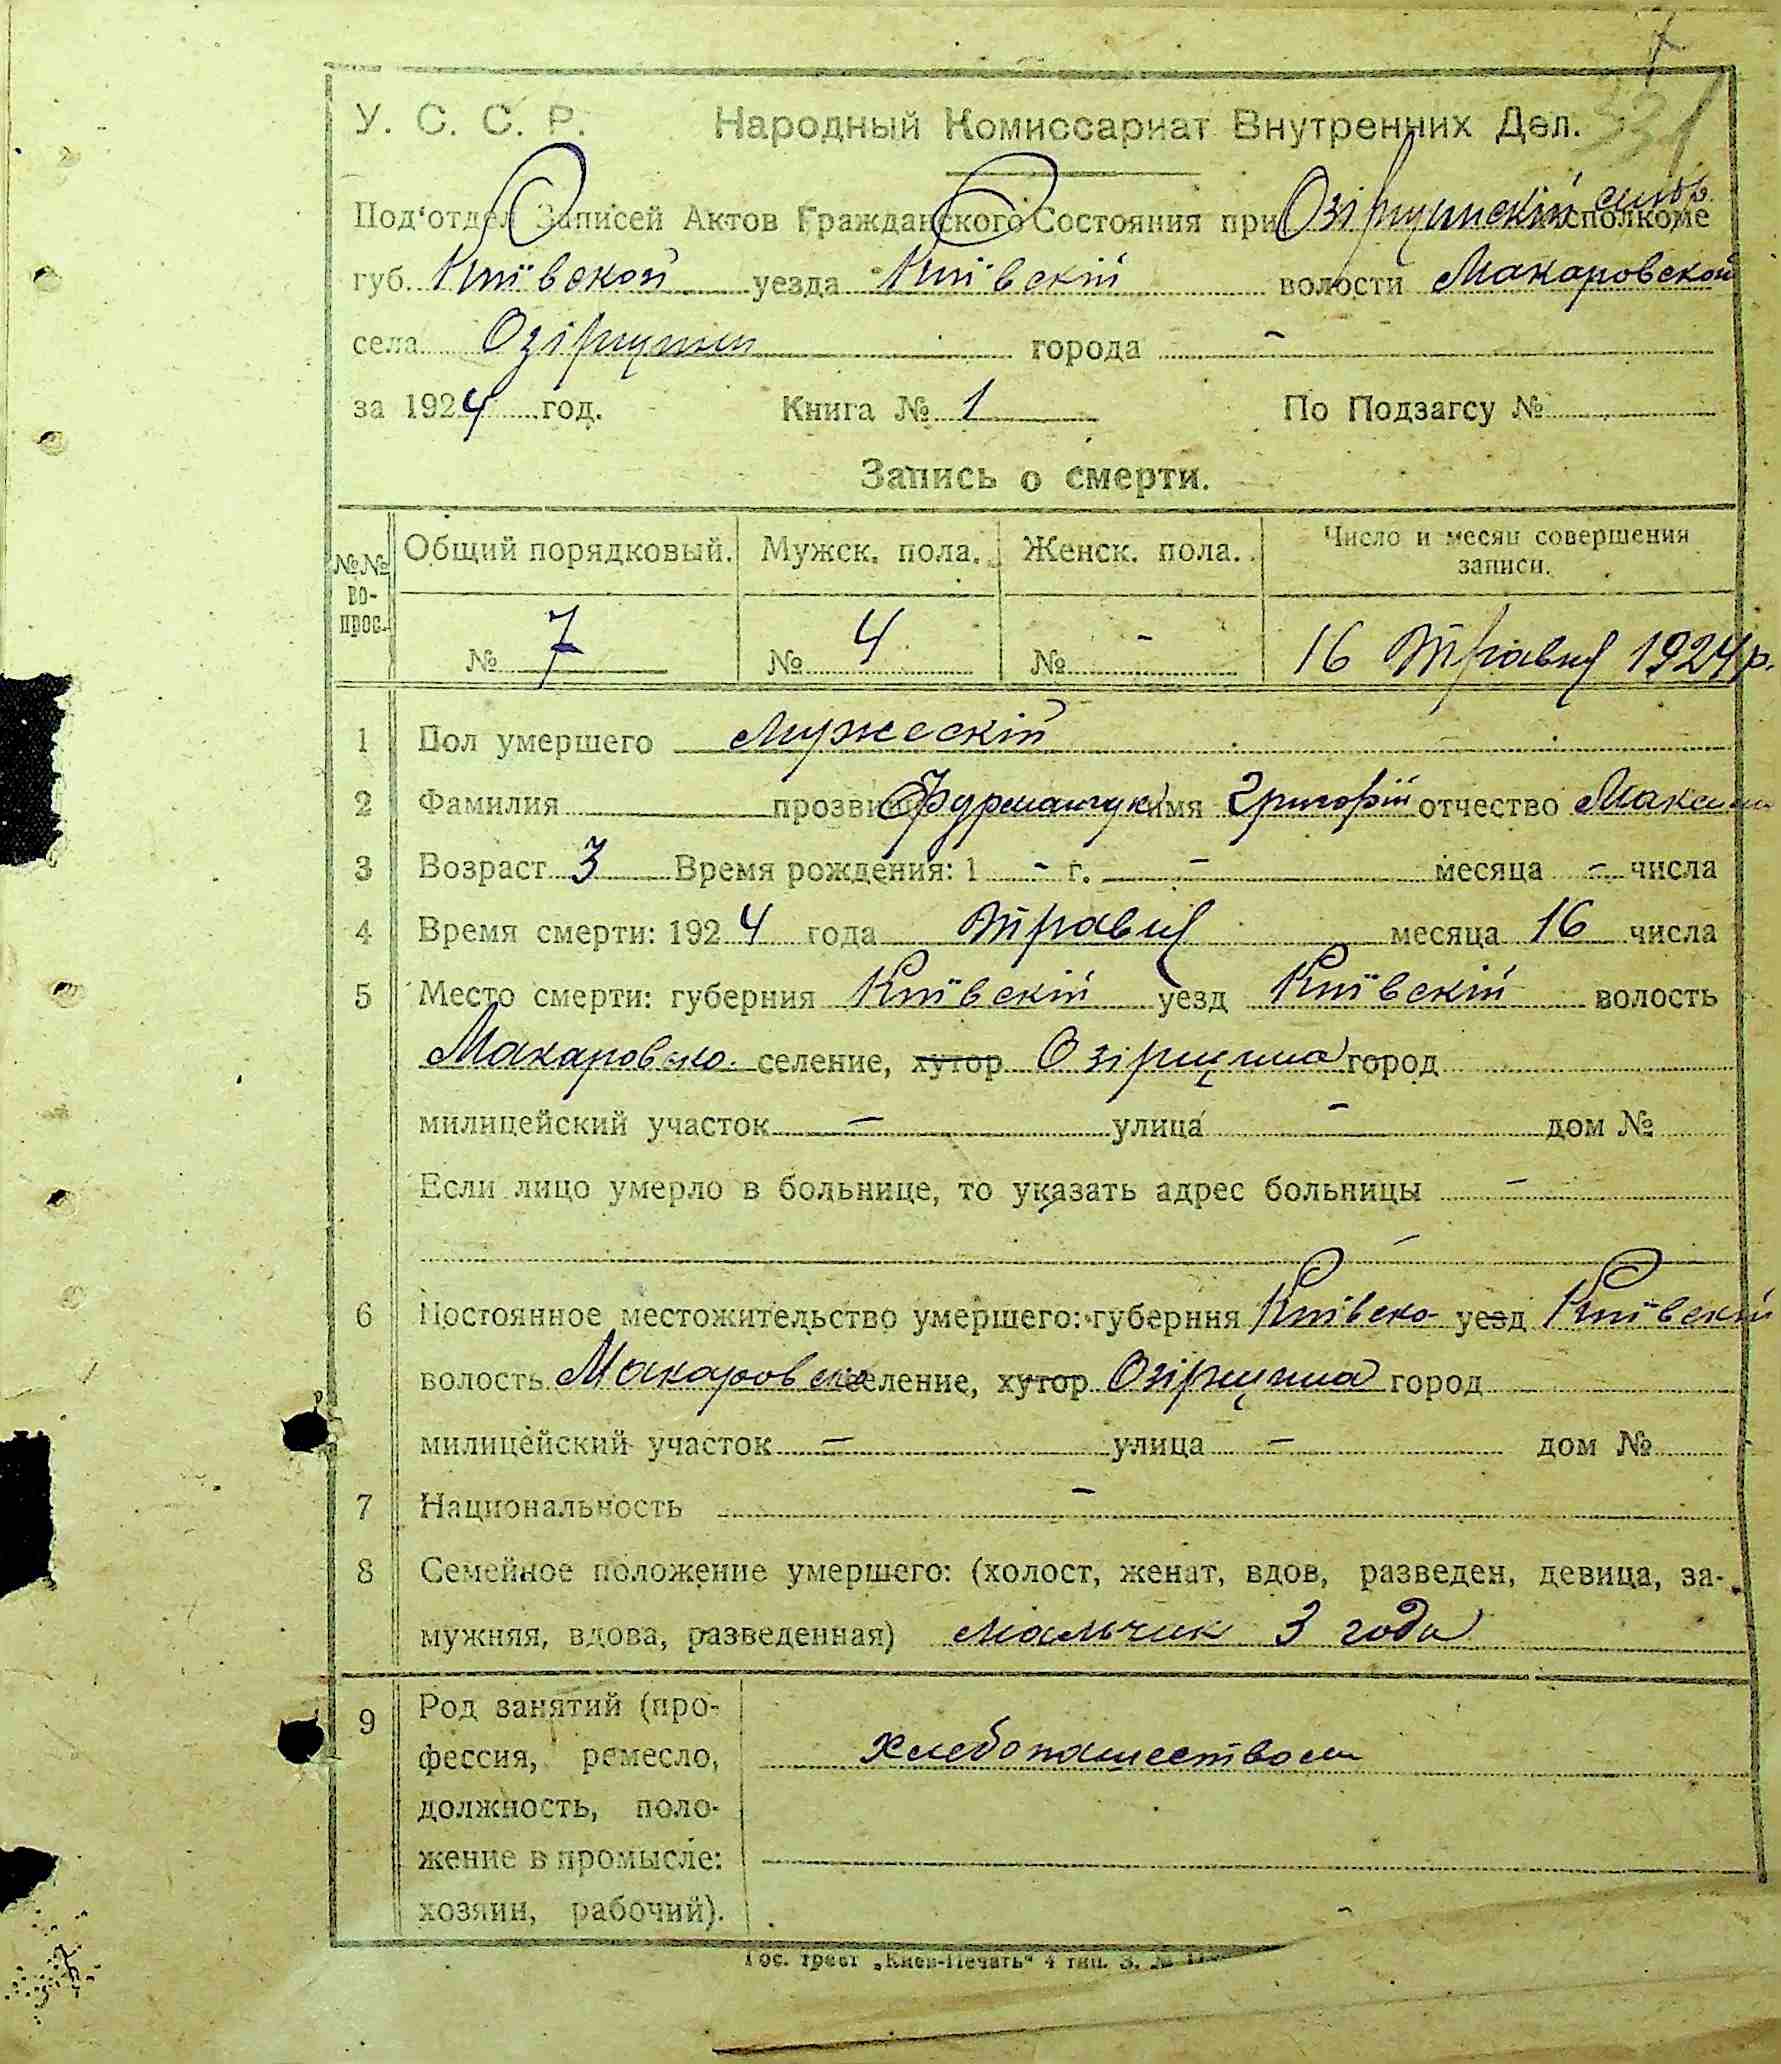 7
331
У. С. С. Р. Народный Комиссариат Внутренних Дел.
Под'отдел Записей Актов Гражданского Состояния при Озірщинскій сільр. исполкоме
губ. Киівской уезда Киівскій волости Макаровской
села Озірщини города -
за 1924 год. Книга № 1 По Подзагсу №
Запись о смерти.
№№ вопрос. Общий порядковый. Мужск. пола. Женск. пола. Число и месяц совершения записи.
№ 7 № 4 № - 16 Травня 1924 р.
1 Пол умершего Мужескій
2 Фамилия прозвище Фурманчук имя Григорій отчество Максим
3 Возраст 3 Время рождения: 1 - г. - месяца - числа
4 Время смерти: 1924 года Травня месяца 16 числа
5 Место смерти: губерния Киівскій уезд Киівскій волость
Макаровско. селение, хутор Озірщина город
милицейский участок - улица - дом №
Если лицо умерло в больнице, то указать адрес больницы -
6 Постоянное местожительство умершего: губерния Киівско- уезд Киівскій
волость Макаровско селение, хутор Озірщина город
милицейский участок - улица - дом №
7 Национальность -
8 Семейное положение умершего: (холост, женат, вдов, разведен, девица, за-
мужняя, вдова, разведенная) мальчик 3 года
9 Род занятий (про-
фессия, ремесло, хлебопашеством
должность, поло-
жение в промысле:
хозяин, рабочий). -
Гос. трест „Киев-Печать" 4 тип. З. №